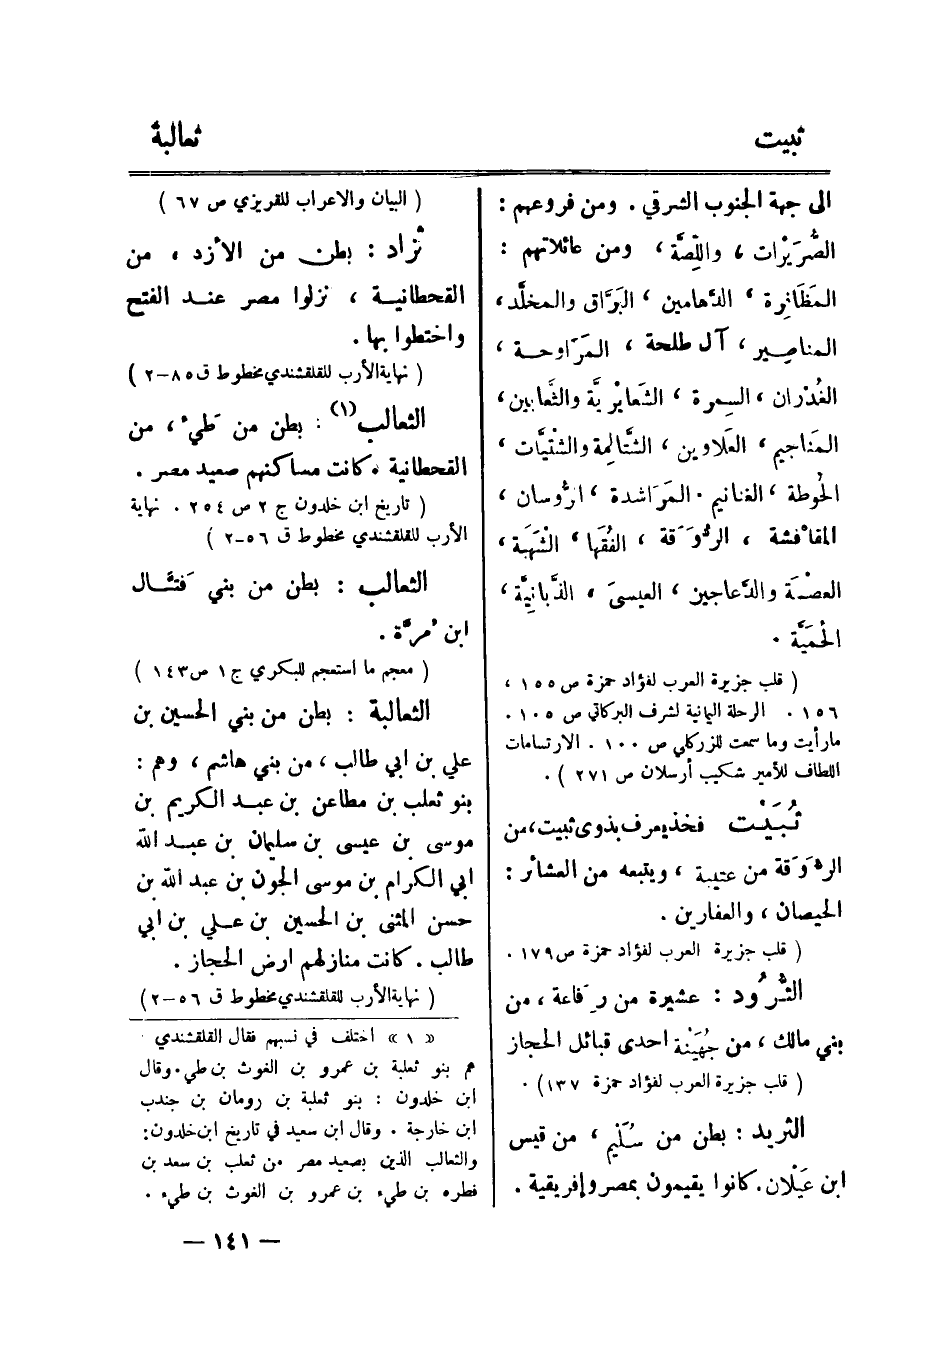 ثبيت
ثعالبة
الى جهة الجنوب الشرقي . ومن فروعهم :
الصُّرَيْرات ، واللِّصَّة ، ومن عائلاتهم :
المَظَانِرة ، الدَّهامين ، البَرَّاق والمخلَّد ،
المناصِير ، آل طلحة ، المَرَاوحة ،
الغُدْران ، السمرة ، الشَّعايْرِيَّة والثَّعابين ،
المَناجيم ، العَلاوين ، الشَّتَالِمَة والشّنيَّات ،
الحُوطة ، الغنانيم . المَرَاشدة ، ارُّوسان ،
المقافشة ، الرُّوَقَة ، الفُقَها ، الشَّهَبَة ،
العصْمَة والدَّعاجين ، العيسىَ ، الذِّبانِيَّة ،
الحُمَيَّة .
( قلب جزيرة العرب لفؤاد حمزة ص ١٥٥ ،
١٥٦ . الرحلة اليمانية لشرف البركاتي ص ١٠٥ .
مارأيت وما سمعت للزركلي ص ١٠٠ . الارتسامات
اللطاف للأمير شكيب أرسلان ص ٢٧١ ) .
ثُبَيْت فخذ يعرف بذوي ثبيت ، من
الرُّوَقَة من عتيبة ، ويتبعه من العشائر :
الحيصان ، والعفارين .
( قلب جزيرة العرب لفؤاد حمزة ص ١٧٩ .
الثُّرُود : عشيرة من رِفَاعة ، من
بني مالك ، من جُهَيْنة احدى قبائل الحجاز
( قلب جزيرة العرب لفؤاد حمزة ١٣٧ ) .
الثريد : بطن من سُلَيم ، من قيس
ابن عَيْلان . كانوا يقيمون بمصر وإفريقية .
( البيان والاعراب للمقريزي ص ٦٧ )
ثُزاد : بطن من الأزد ، من
القحطانية ، نزلوا مصر عند الفتح
واختطوا بها .
( نهاية الأرب للقلقشندي مخطوط ق ٨٥-٢ )
الثعالب (١) : بطن من طَيء ، من
القحطانية ، كانت مساكنهم صعيد مصر .
( تاريخ ابن خلدون ج ٢ ص ٢٥٤ . نهاية
الأرب للقلقشندي مخطوط ق ٥٦-٢ )
الثعالب : بطن من بني فَتَّال
ابن مُرَّة .
( معجم ما استعجم للبكري ج ١ ص ١٤٣ )
الثعالبة : بطن من بني الحسين بن
علي بن ابي طالب ، من بني هاشم ، وهم :
بنو ثعلب بن مطاعن بن عبد الكريم بن
موسى بن عيسى بن سليمان بن عبد الله
ابي الكرام بن موسى الجون بن عبد الله بن
حسن المثنى بن الحسين بن علي بن ابي
طالب . كانت منازلهم ارض الحجاز .
( نهاية الأرب للقلقشندي مخطوط ق ٥٦-٢ )
« ١ » اختلف في نسبهم فقال القلقشندي
هم بنو ثعلبة بن عمرو بن الغوث بن طي . وقال
ابن خلدون : بنو ثعلبة بن رومان بن جندب
ابن خارجة . وقال ابن سعيد في تاريخ ابن خلدون :
والثعالب الذين بصعيد مصر من ثعلب بن سعد بن
فطره بن طيء بن عمرو بن الغوث بن طيء .
— ١٤١ —